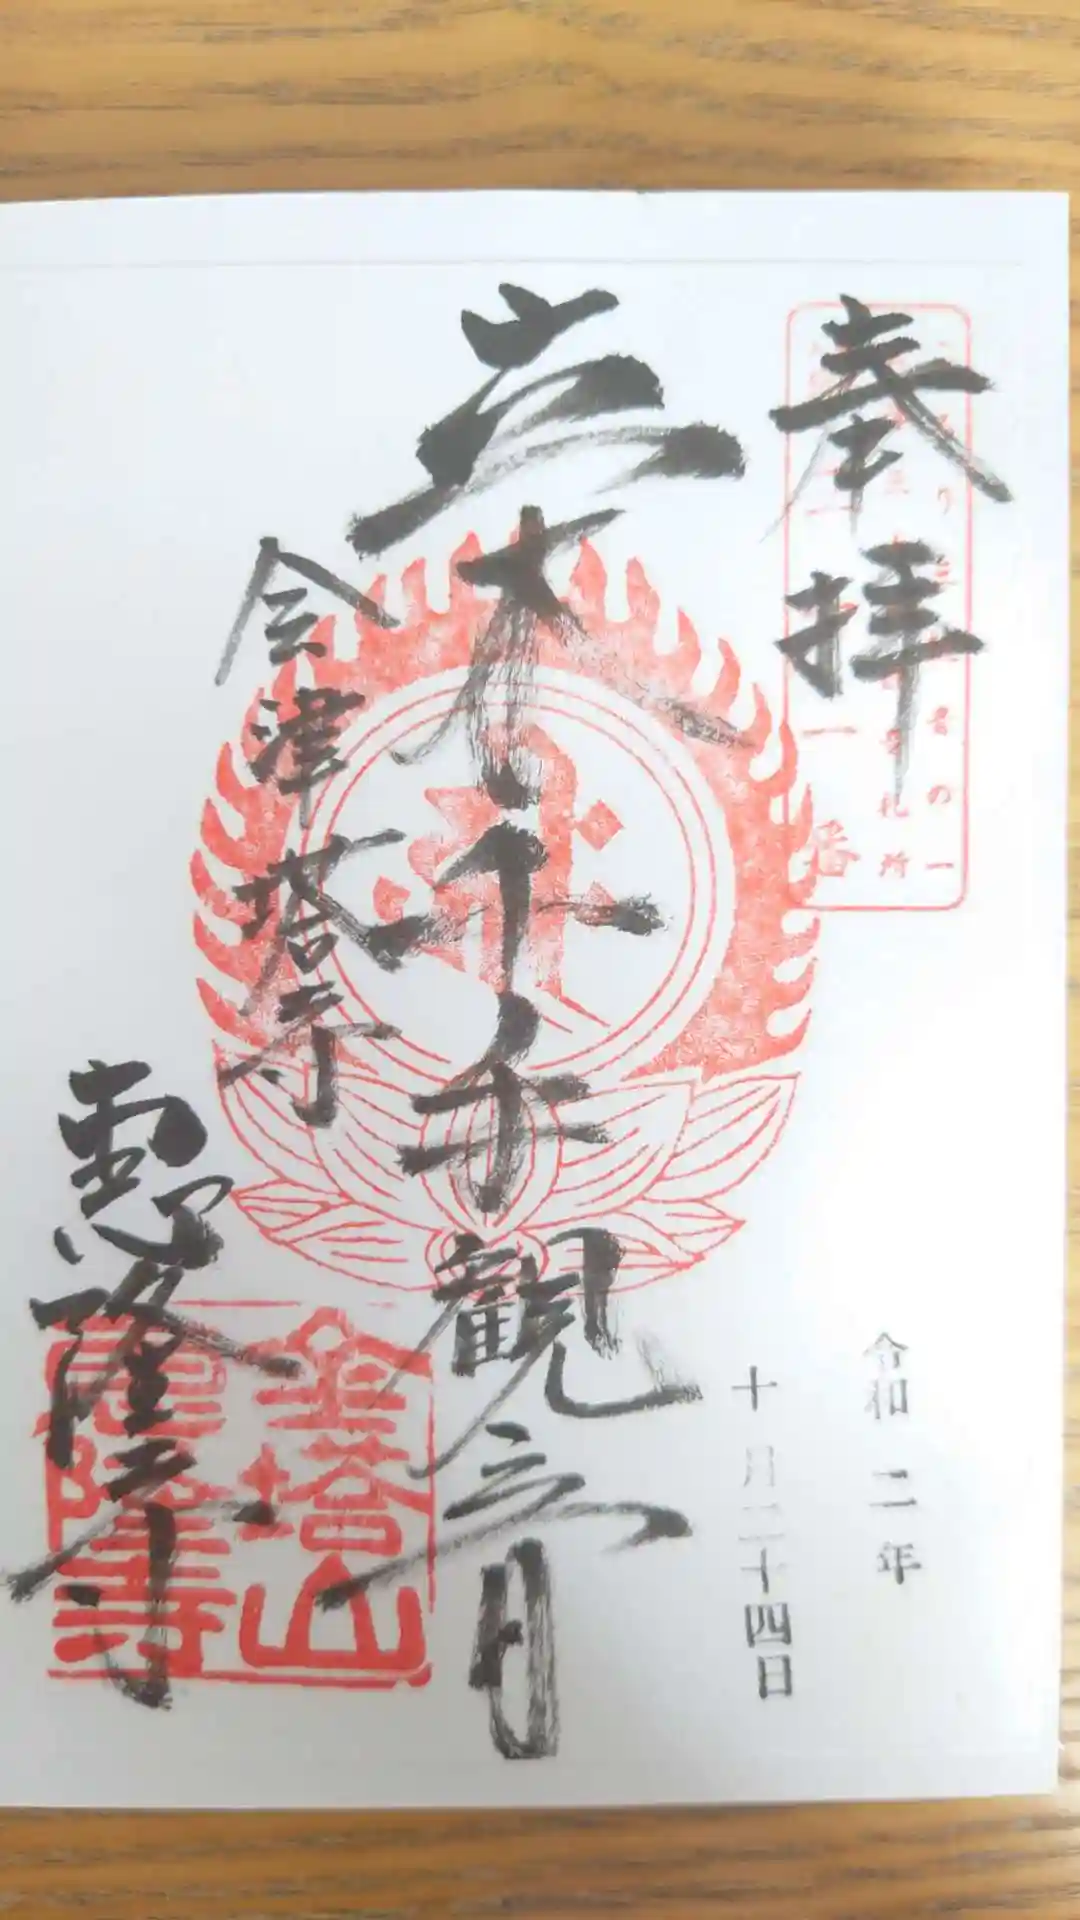 奉拝
令和二年
十月二十四日
立木千手観音
会津塔寺
恵隆寺
金塔山
恵隆寺